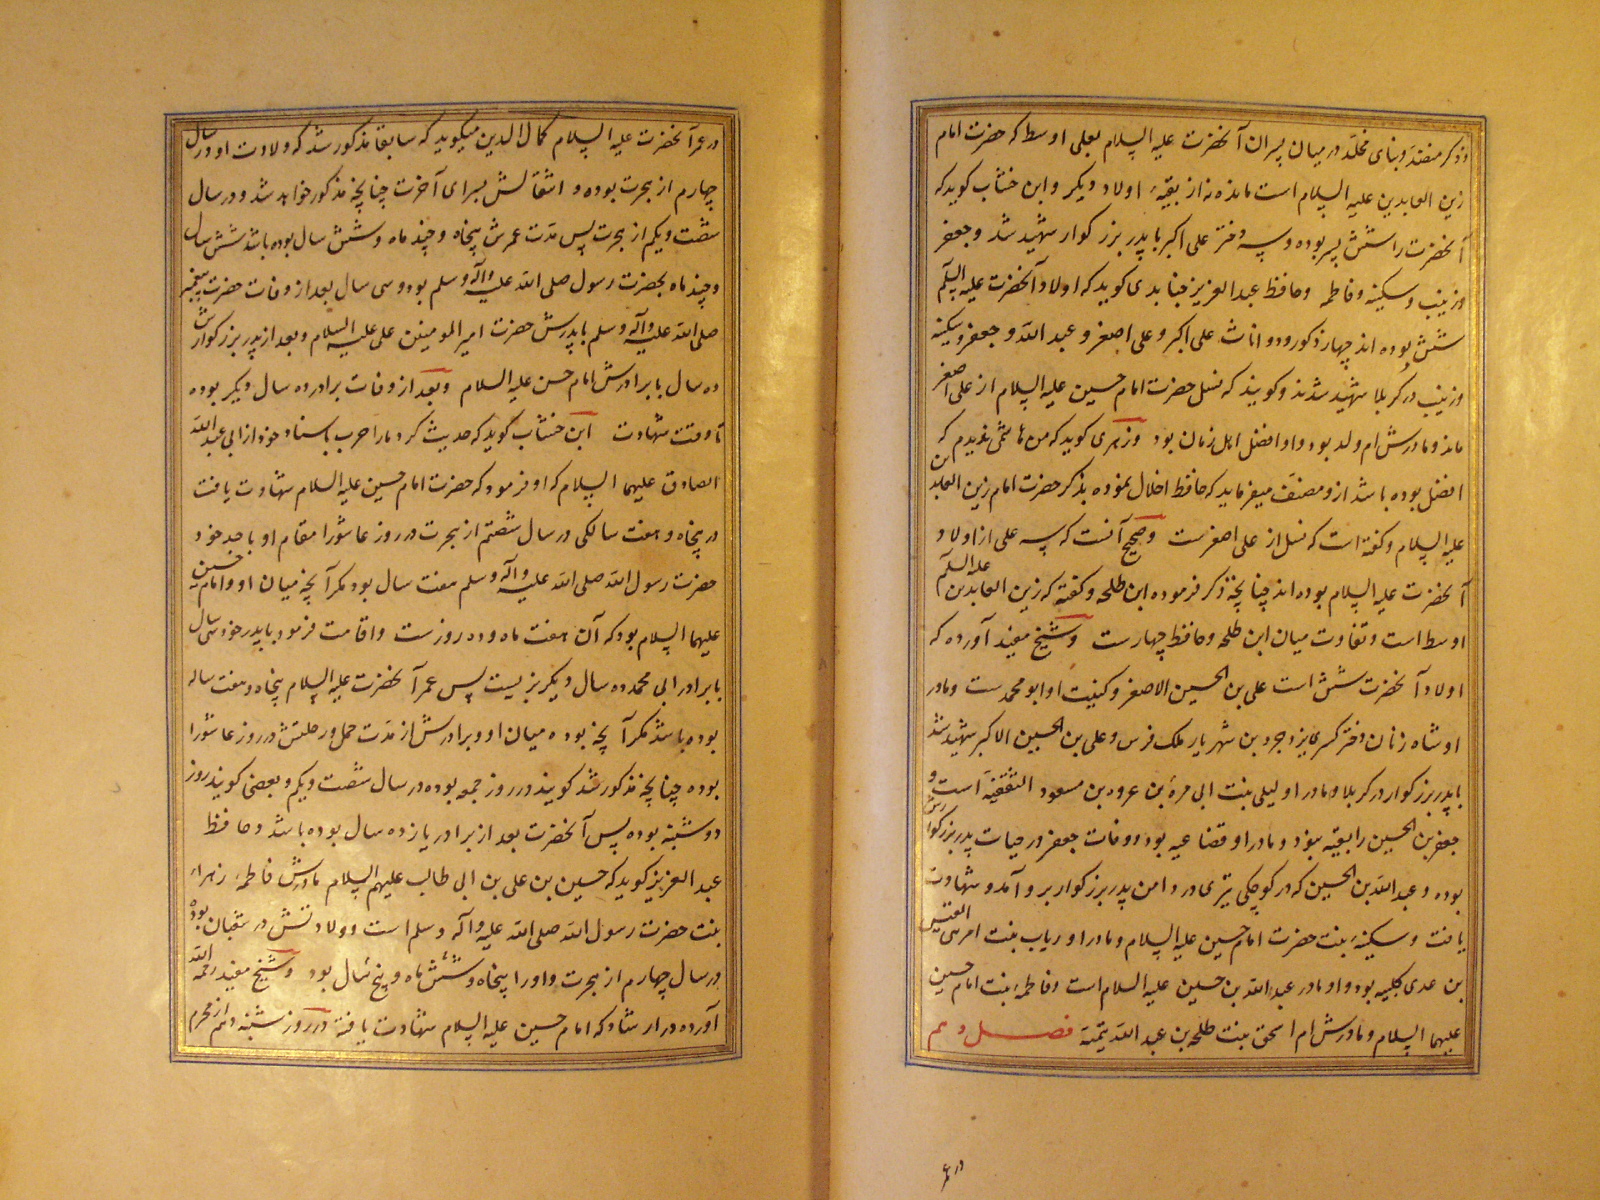 و ذکر منضد و بنای مخلد در میان پسران آنحضرت علیه السلام بعلی اوسط که حضرت امام
زین العابدین علیه السلام است مانده نه از بقیهٔ اولاد دیگر و ابن خشاب گوید که
آنحضرت را شش پسر بوده و سه دختر علی اکبر با پدر بزرگوار شهید شد و جعفر
و زینب و سکینه و فاطمه و حافظ عبد العزیز جنابدی گوید که اولاد آنحضرت علیه السلم
شش بوده اند چهار ذکور و دو اناث علی اکبر و علی اصغر و عبد الله و جعفر و سکینه
و زینب در کربلا شهید شدند و گویند که نسل حضرت امام حسین علیه السلام از علی اصغر
ماند و مادرش ام ولد بود و او افضل اهل زمان بود و زهری گوید که من هاشمی ندیدم که
افضل بوده باشد ازو مصنف میفرماید که حافظ اخلال نموده بذکر حضرت امام زین العابدین
علیه السلام و گفته است که نسل از علی اصغرست و صحیح آنست که سه علی از اولاد
آنحضرت علیه السلام بوده اند چنانچه ذکر فرموده ابن طلحه و گفته که زین العابدین علیه السلم
اوسط است و تفاوت میان ابن طلحه و حافظ چهارست و شیخ مفید آورده که
اولاد آنحضرت شش است علی بن الحسین الاصغر و کنیت او ابو محمدست و مادر
او شاه زنان دختر کسری یزدجرد بن شهریار ملک فرس و علی بن الحسین الاکبر شهید شد
با پدر بزرگوار در کربلا و مادر او لیلی بنت ابی مرة بن عروه بن مسعود الثقفیه است و
جعفر بن الحسین را بقیه نبود و مادر او قضاعیه بود و وفات جعفر در حیات پدر بزرگوارش
بوده و عبد الله بن الحسین که در کوچکی تیری در دامن پدر بزرگوار برو آمد و شهادت
یافت و سکینه بنت حضرت امام حسین علیه السلام و مادر او رباب بنت امرئ القیس
بن عدی کلبیه بود و او مادر عبد الله بن حسین علیه السلام است و فاطمه بنت امام حسین
علیهما السلام و مادرش ام اسحق بنت طلحه بن عبد الله تیمیه فصل دهم
در عمر
در عمر آنحضرت علیه السلام کمال الدین میگوید که سابقا مذکور شد که ولادت او در سال
چهارم از هجرت بوده و انتقالش بسرای آخرت چنانچه مذکور خواهد شد و در سال
شصت و یکم از هجرت پس مدت عمرش پنجاه و چند ماه و شش سال بوده باشد شش سال
و چند ماه بحضرت رسول صلی الله علیه و آله و سلم بوده و سی سال بعد از وفات حضرت پیغمبر
صلی الله علیه و آله و سلم با پدرش حضرت امیر المومنین علی علیه السلام و بعد از پدر بزرگوارش
ده سال با برادرش امام حسن علیه السلام و بعد از وفات برادر ده سال دیگر بوده
تا وقت شهادت ابن خشاب گوید که حدیث کرد ما را حرب باسناد خود از ابی عبد الله
الصادق علیهما السلام که او فرمود که حضرت امام حسین علیه السلام شهادت یافت
در پنجاه و هفت سالگی در سال شصتم از هجرت در روز عاشورا مقام او با جد خود
حضرت رسول الله صلی الله علیه و آله و سلم هفت سال بود مگر آنچه میان او و امام حسن
علیهما السلام بود که آن هفت ماه و ده روزست و اقامت فرمود با پدر خود سی سال
با برادر ابی محمد ده سال دیگر بزیست پس عمر آنحضرت علیه السلام پنجاه و هفت ساله
بوده باشد مگر آنچه بوده میان او و برادرش از مدت حمل و رحلتش در روز عاشورا
بوده چنانچه مذکور شد گویند در روز جمعه بوده در سال شصت و یکم و بعضی گویند روز
دوشنبه بوده پس آنحضرت بعد از برادر یازده سال بوده باشد و حافظ
عبد العزیز گوید که حسین بن علی بن ابی طالب علیهم السلام مادرش فاطمه زهراء
بنت حضرت رسول الله صلی الله علیه و آله و سلم است و ولادتش در شعبان بوده
در سال چهارم از هجرت و او را پنجاه و شش ماه و پنج سال بود و شیخ مفید رحمه الله
آورده در ارشاد که امام حسین علیه السلام شهادت یافته در روز شنبه دهم از محرم